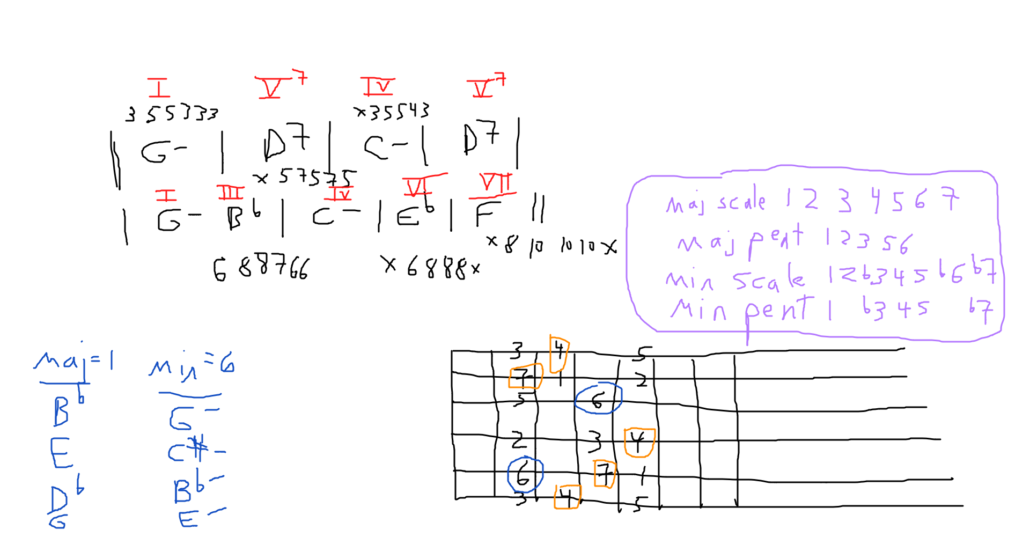 I V7 IV V7
355333 x35543
|| G- | D7 | C- | D7 |
x57575
I III IV VI VII
| G- Bb | C- | Eb | F ||
688766 x6888x x8 10 10 10 x
maj scale 1 2 3 4 5 6 7
maj pent 1 2 3 5 6
min scale 1 2 b3 4 5 b6 b7
min pent 1 b3 4 5 b7
maj=1 min=6
Bb G-
E C#-
Db Bb-
G E-
3 4 5
7 1 2
5 6
2 3 4
6 7 1
3 4 5